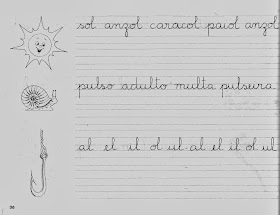 sol anzol caracol paiol anzol
pulso adulto multa pulseira
al el il ol ul al el il ol ul
38